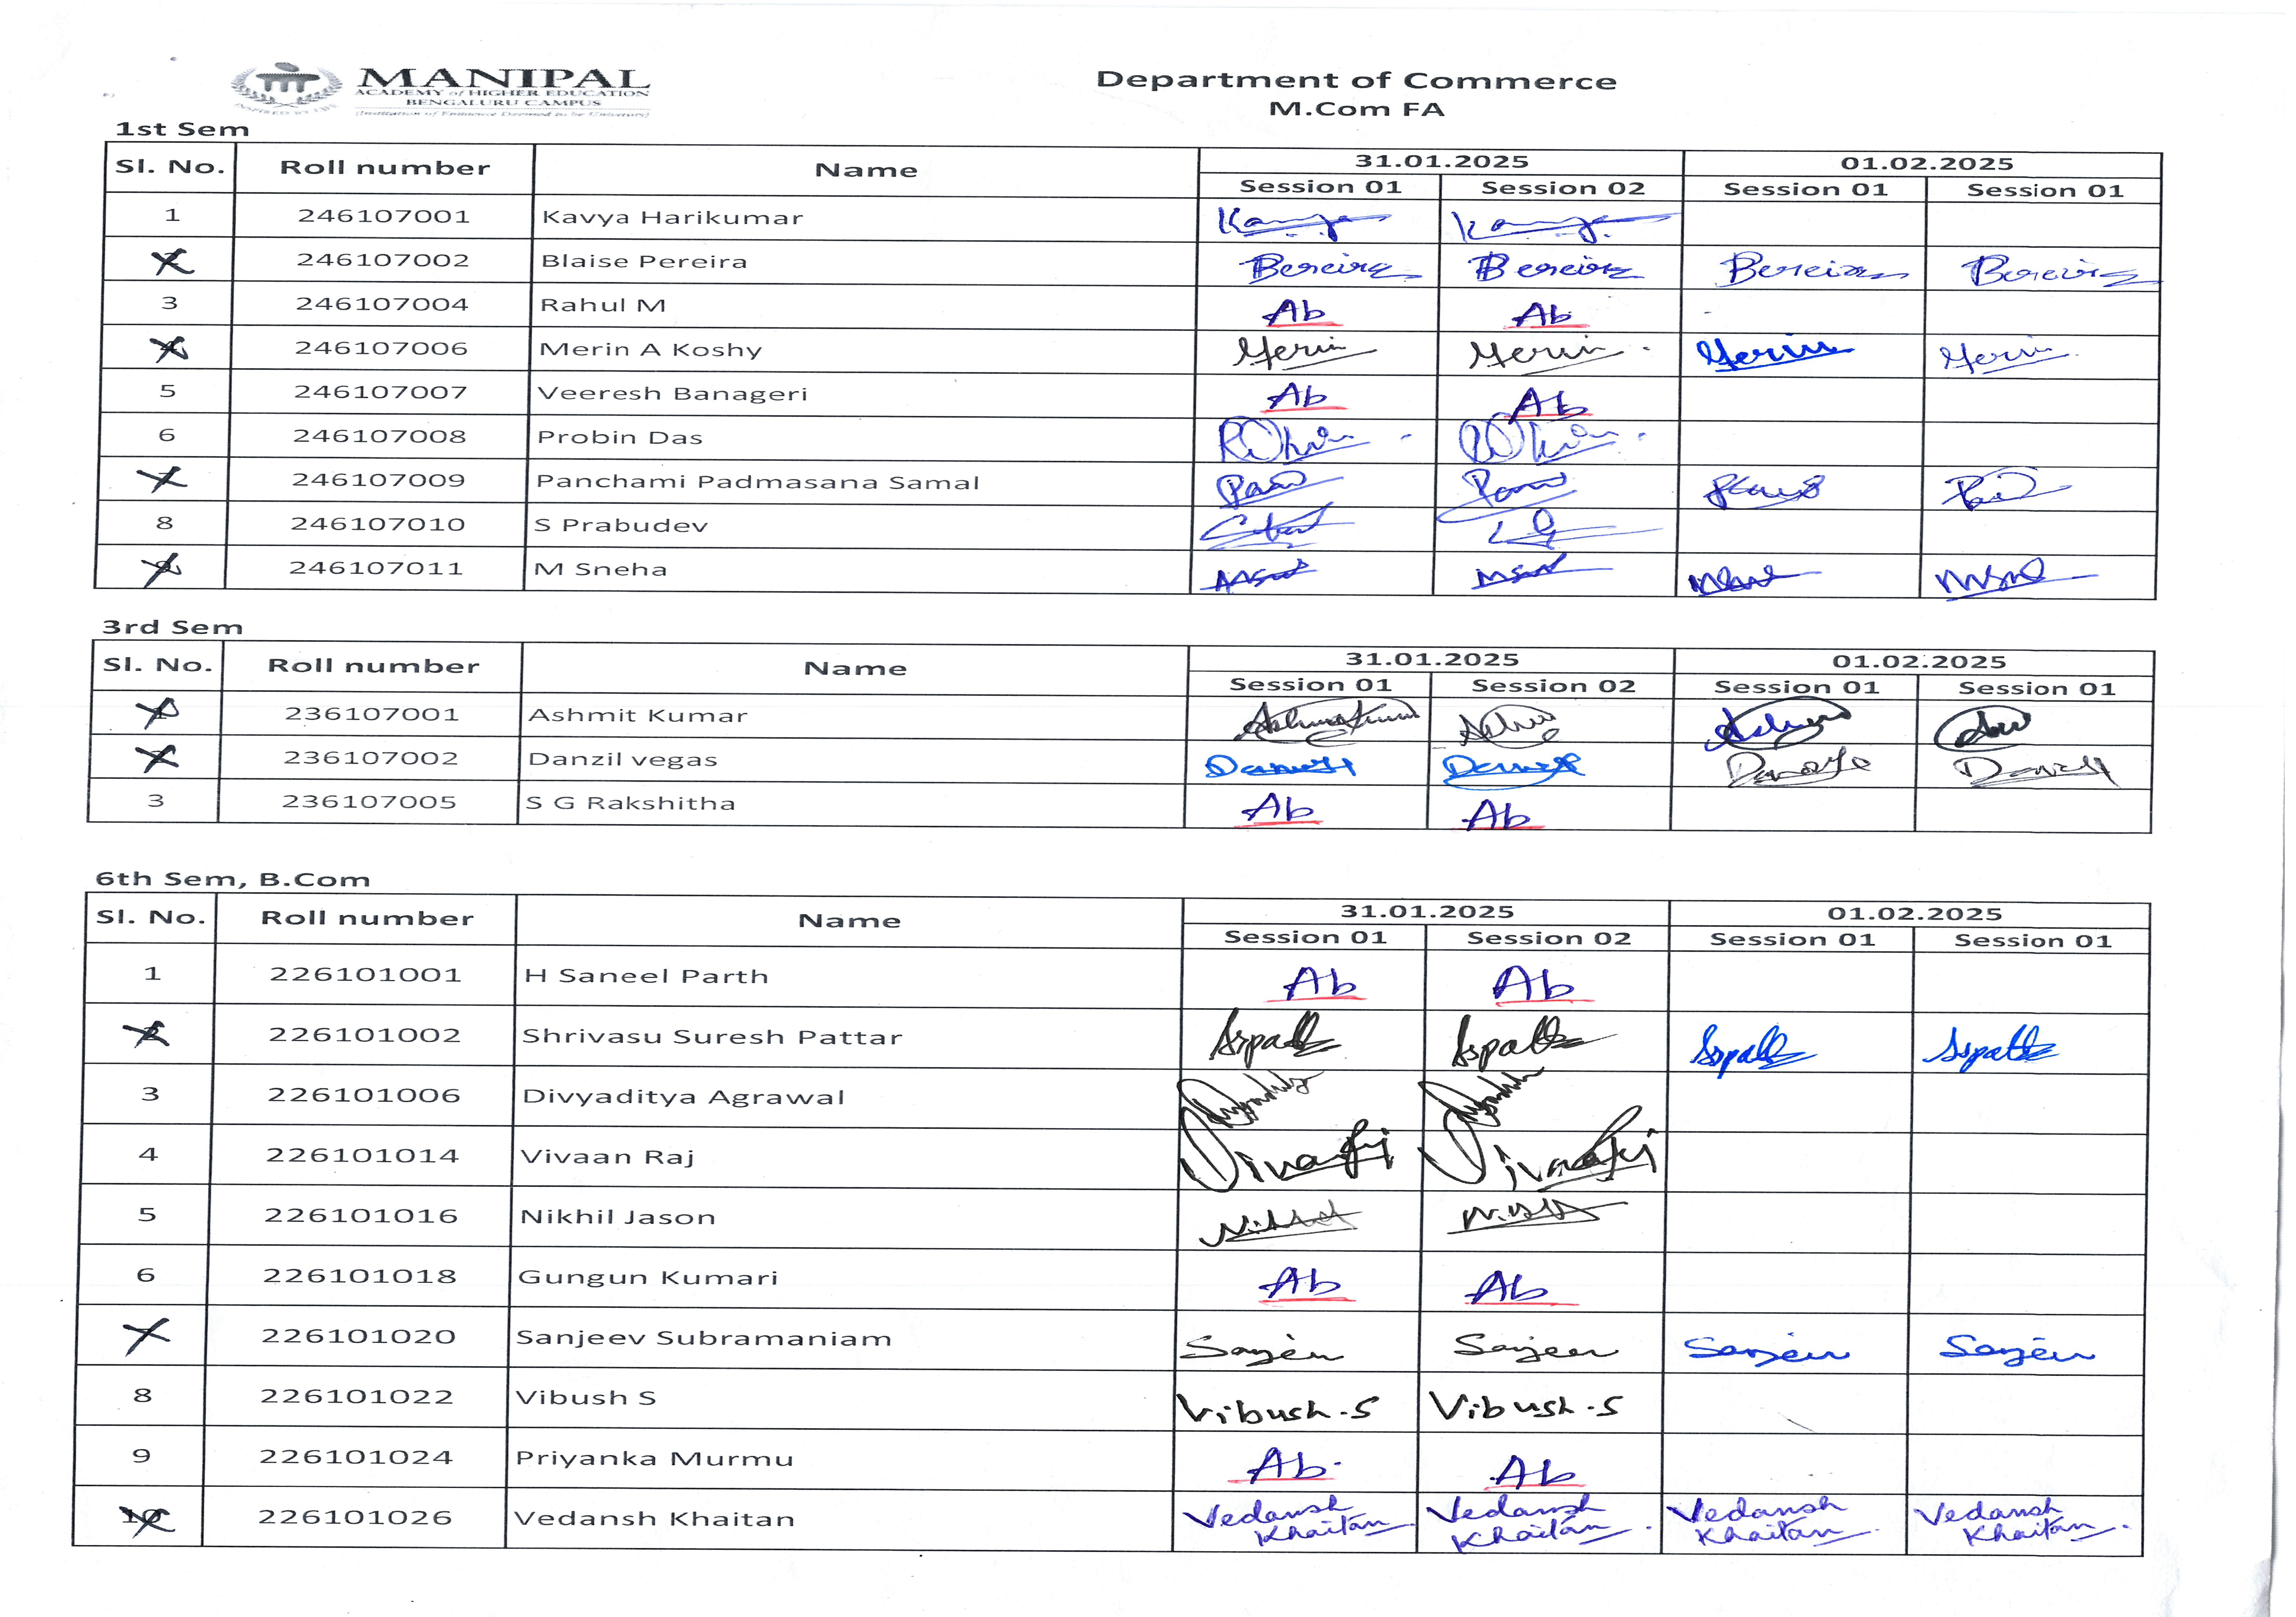 MANIPAL
ACADEMY of HIGHER EDUCATION
BENGALURU CAMPUS
(Institution of Eminence Deemed to be University)
Department of Commerce
M.Com FA
1st Sem
Sl. No. Roll number Name 31.01.2025 01.02.2025
Session 01 Session 02 Session 01 Session 01
1 246107001 Kavya Harikumar
246107002 Blaise Pereira Bereira Bereira Bereira Bereira
3 246107004 Rahul M Ab Ab
246107006 Merin A Koshy Merin Merin Merin Merin
5 246107007 Veeresh Banageri Ab Ab
6 246107008 Probin Das
7 246107009 Panchami Padmasana Samal
8 246107010 S Prabudev
9 246107011 M Sneha
3rd Sem
Sl. No. Roll number Name 31.01.2025 01.02.2025
Session 01 Session 02 Session 01 Session 01
1 236107001 Ashmit Kumar
236107002 Danzil vegas
3 236107005 S G Rakshitha Ab Ab
6th Sem, B.Com
Sl. No. Roll number Name 31.01.2025 01.02.2025
Session 01 Session 02 Session 01 Session 01
1 226101001 H Saneel Parth Ab Ab
2 226101002 Shrivasu Suresh Pattar
3 226101006 Divyaditya Agrawal
4 226101014 Vivaan Raj
5 226101016 Nikhil Jason
6 226101018 Gungun Kumari Ab Ab
7 226101020 Sanjeev Subramaniam
8 226101022 Vibush S Vibush.S Vibush.S
9 226101024 Priyanka Murmu Ab. Ab
10 226101026 Vedansh Khaitan Vedansh Khaitan Vedansh Khaitan. Vedansh Khaitan. Vedansh Khaitan.